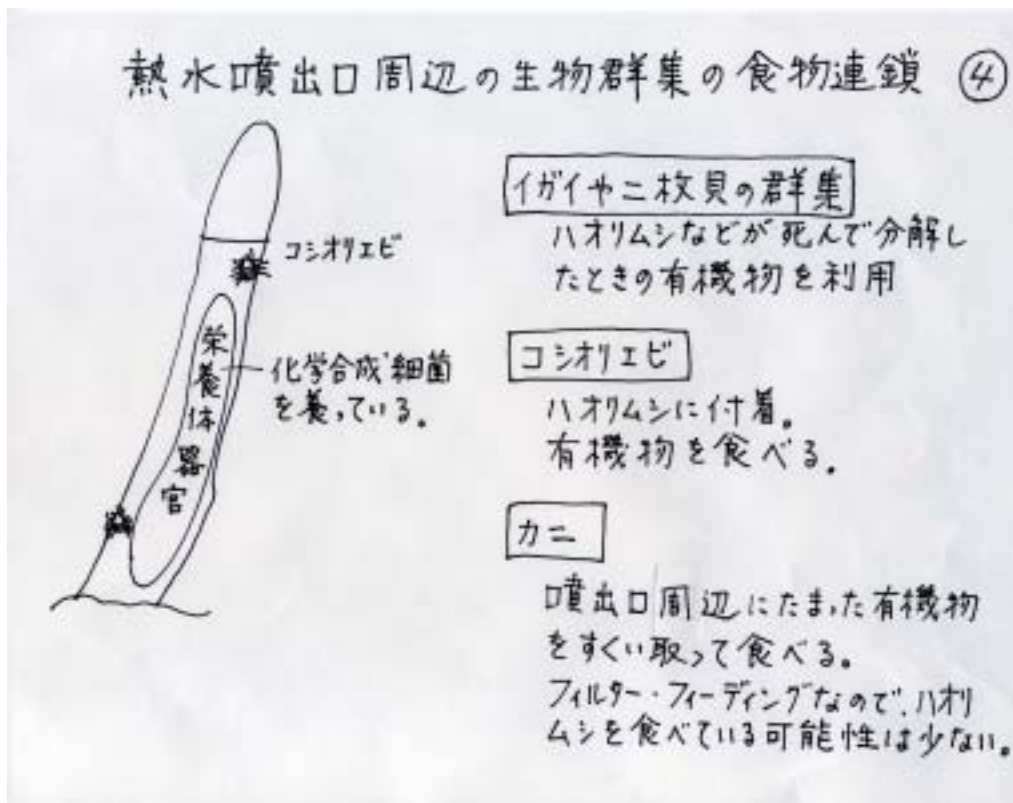 熱水噴出口周辺の生物群集の食物連鎖 ④
コシオリエビ
栄養体器官
化学合成細菌
を養っている。
イガイや二枚貝の群集
ハオリムシなどが死んで分解し
たときの有機物を利用
コシオリエビ
ハオリムシに付着。
有機物を食べる。
カニ
噴出口周辺にたまった有機物
をすくい取って食べる。
フィルター・フィーディングなので、ハオリ
ムシを食べている可能性は少ない。